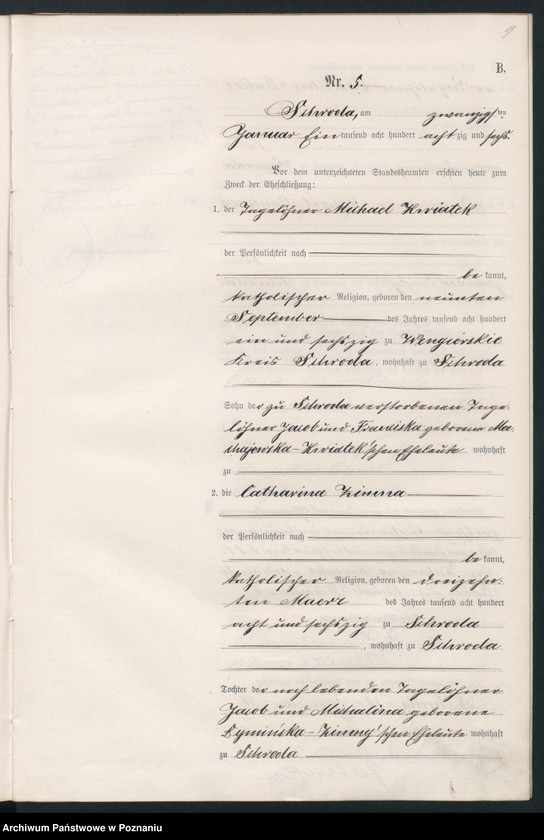 B.
Nr. 5.
Schroda, am zwanzigsten
Januar Ein tausend acht hundert acht zig und sechs.
Vor dem unterzeichneten Standesbeamten erschien heute zum
Zweck der Eheschließung:
1. der Tagelöhner Michael Kwiatek
der Persönlichkeit nach
be kannt,
katholischer Religion, geboren den neunten
September des Jahres tausend acht hundert
ein und sechszig zu Wengierskie
Kreis Schroda, wohnhaft zu Schroda
Sohn der zu Schroda verstorbenen Tage-
löhner Jacob und Franciska geborene Ma
chajewska - Kwiatek'schen Eheleute wohnhaft
zu
2. die Catharina Zimna
der Persönlichkeit nach
be kannt,
katholischer Religion, geboren den dreizehn-
ten Maerz des Jahres tausend acht hundert
acht und sechszig zu Schroda
, wohnhaft zu Schroda
Tochter der noch lebenden Tagelöhner
Jacob und Michalina geborene
Dymińska - Zimny'schen Eheleute wohnhaft
zu Schroda
Archiwum Państwowe w Poznaniu